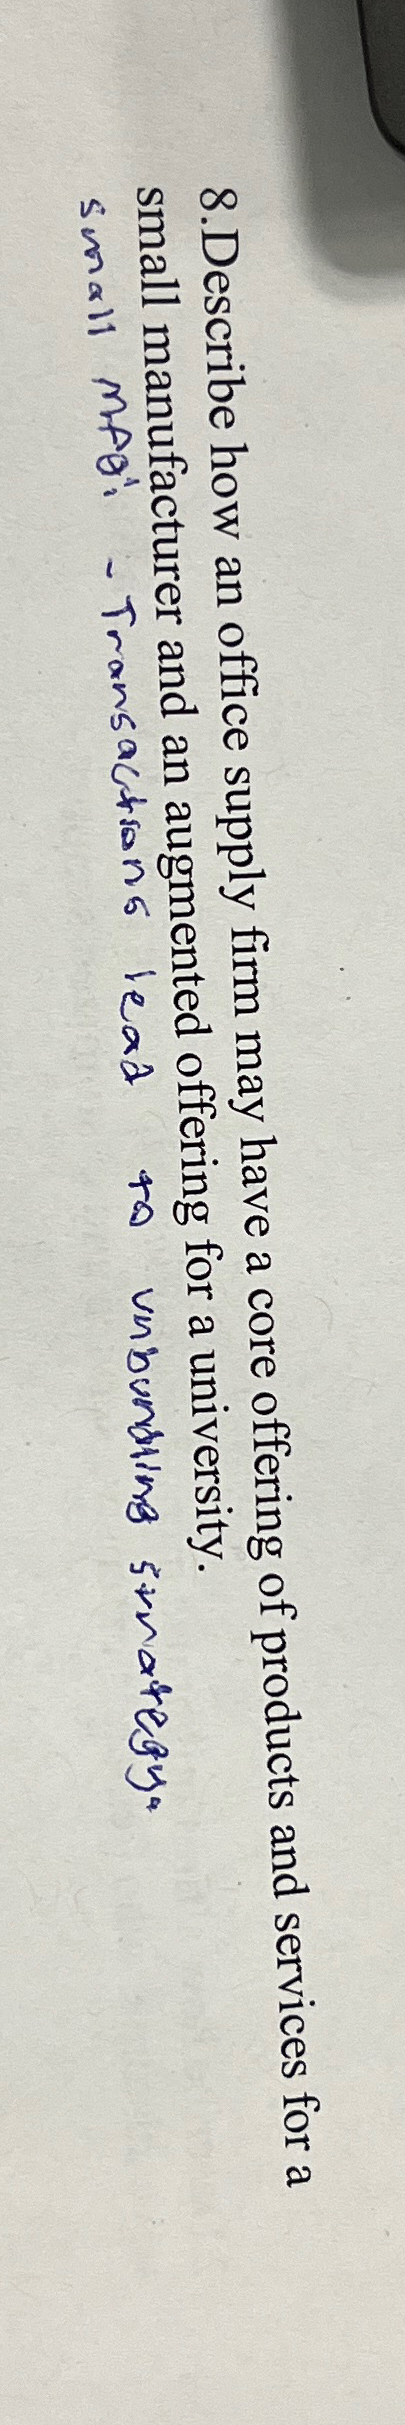 8.Describe how an office supply firm may have a core offering of products and services for a
small manufacturer and an augmented offering for a university.
small mfg: - Transactions lead to unbundling strategy.